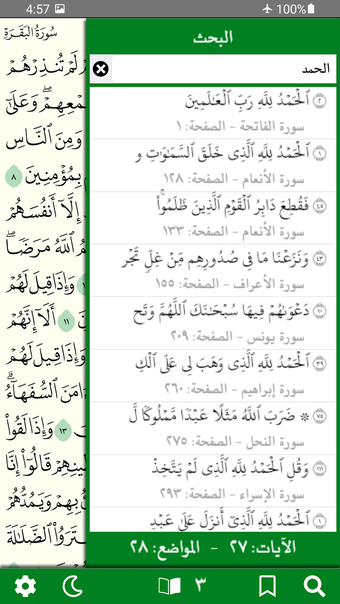 4:57
100%
سُورَةُ البَقَرَةِ
البحث
الحمد
ٱلۡحَمۡدُ لِلَّهِ رَبِّ ٱلۡعَٰلَمِينَ ٢
سورة الفاتحة - الصفحة: ١
ٱلۡحَمۡدُ لِلَّهِ ٱلَّذِي خَلَقَ ٱلسَّمَٰوَٰتِ وَ ١
سورة الأنعام - الصفحة: ١٢٨
فَقُطِعَ دَابِرُ ٱلۡقَوۡمِ ٱلَّذِينَ ظَلَمُواْۚ ٤٥
سورة الأنعام - الصفحة: ١٣٣
وَنَزَعۡنَا مَا فِي صُدُورِهِم مِّنۡ غِلّٖ تَجۡرِ ٤٣
سورة الأعراف - الصفحة: ١٥٥
دَعۡوَىٰهُمۡ فِيهَا سُبۡحَٰنَكَ ٱللَّهُمَّ وَتَحِ ١٠
سورة يونس - الصفحة: ٢٠٩
ٱلۡحَمۡدُ لِلَّهِ ٱلَّذِي وَهَبَ لِي عَلَى ٱلۡكِ ٣٩
سورة إبراهيم - الصفحة: ٢٦٠
۞ ضَرَبَ ٱللَّهُ مَثَلًا عَبۡدٗا مَّمۡلُوكٗا لَّ ٧٥
سورة النحل - الصفحة: ٢٧٥
وَقُلِ ٱلۡحَمۡدُ لِلَّهِ ٱلَّذِي لَمۡ يَتَّخِذۡ ١١١
سورة الإسراء - الصفحة: ٢٩٣
ٱلۡحَمۡدُ لِلَّهِ ٱلَّذِيٓ أَنزَلَ عَلَىٰ عَبۡدِ ١
الآيات: ٢٧ - المواضع: ٢٨
لَمۡ تُنذِرۡهُمۡ
وَعَلَىٰٓ
وَمِنَ ٱلنَّاسِ
بِمُؤۡمِنِينَ ٨
إِلَّآ أَنفُسَهُمۡ
ٱللَّهُ مَرَضٗاۖ
وَإِذَا قِيلَ لَهُمۡ
١١ أَلَآ إِنَّهُمۡ
وَإِذَا قِيلَ لَهُمۡ
ٱلسُّفَهَآءُۗ
١٣ وَإِذَا لَقُواْ
قَالُوٓاْ إِنَّا
بِهِمۡ وَيَمُدُّهُمۡ
ٱشۡتَرَوُاْ ٱلضَّلَٰلَةَ
٣